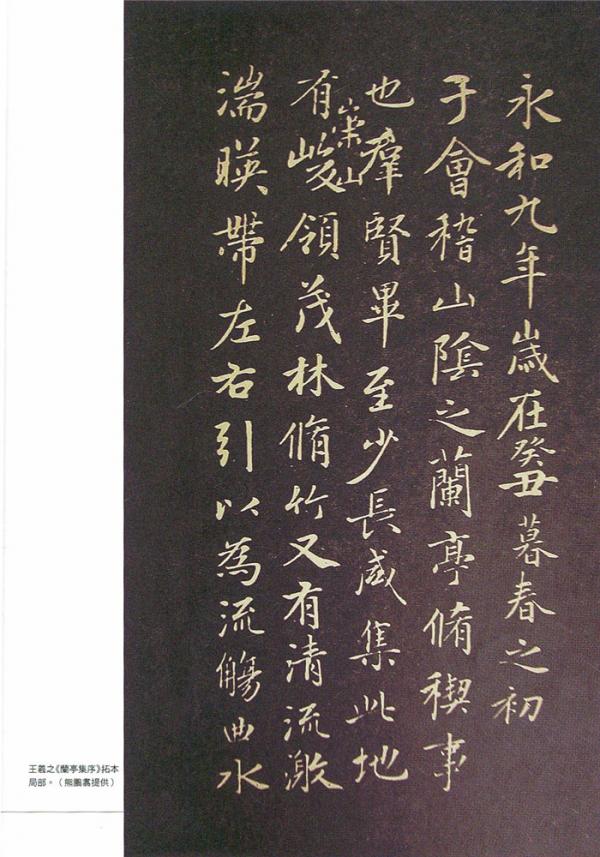 永和九年歲在癸丑暮春之初
于會稽山陰之蘭亭脩稧事
也羣賢畢至少長咸集此地
有崇山峻領茂林脩竹又有清流激
湍暎帶左右引以為流觴曲水
王羲之《蘭亭集序》拓本
局部。(熊鵬翥提供)